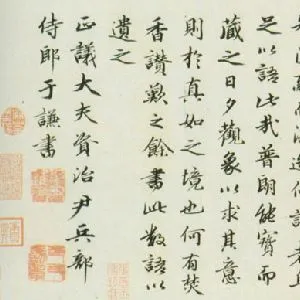 足以語此哉普朗能寶而
藏之日夕觀象以求其意
則於真如之境也何有焚
香讚歎之餘書此數語以
遺之
正議大夫資治尹兵部
侍郎于謙書